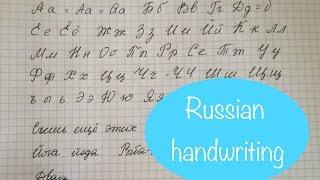 Аа = Аа = Аа Бб Вв Гг Дд = д
Ее Ёё Жж Зз Ии Йй Кк Лл
Мм Нн Оо Пп Рр Сс Тт Уу
Фф Хх Цц Чч - Чч Шш Щщ
ъ ы ь Ээ Юю Яя
ещё этих
йога йода
Russian
handwriting